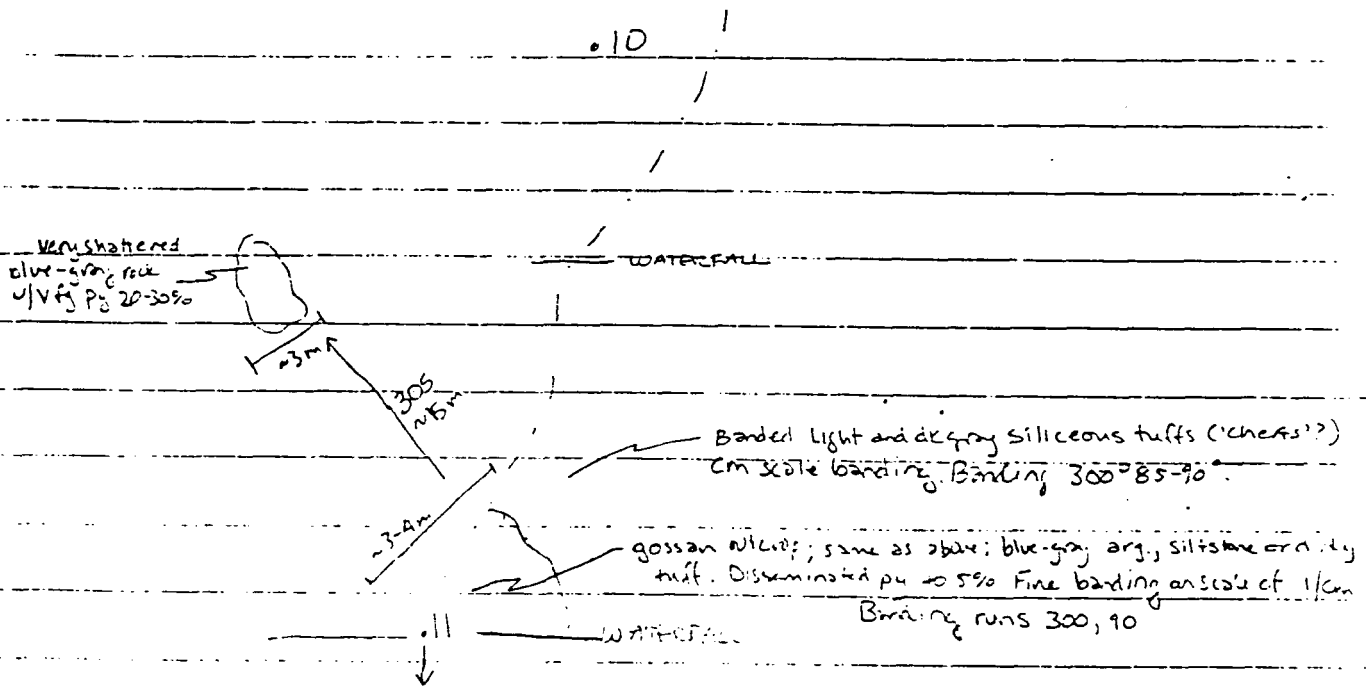 .10
Very shattered
blue-gray rock
w/ Vfg Py 20-30%
WATERFALL
~3m
305
~15m
Banded light and dk gray siliceous tuffs ('cherts'?)
cm scale banding. Banding 300° 85-90°.
~3-4m
gossan same as above; blue-gray arg., siltstone or
tuff. Disseminated py to 5% Fine banding on scale of 1/cm
Banding runs 300, 90
.11
WATERFALL